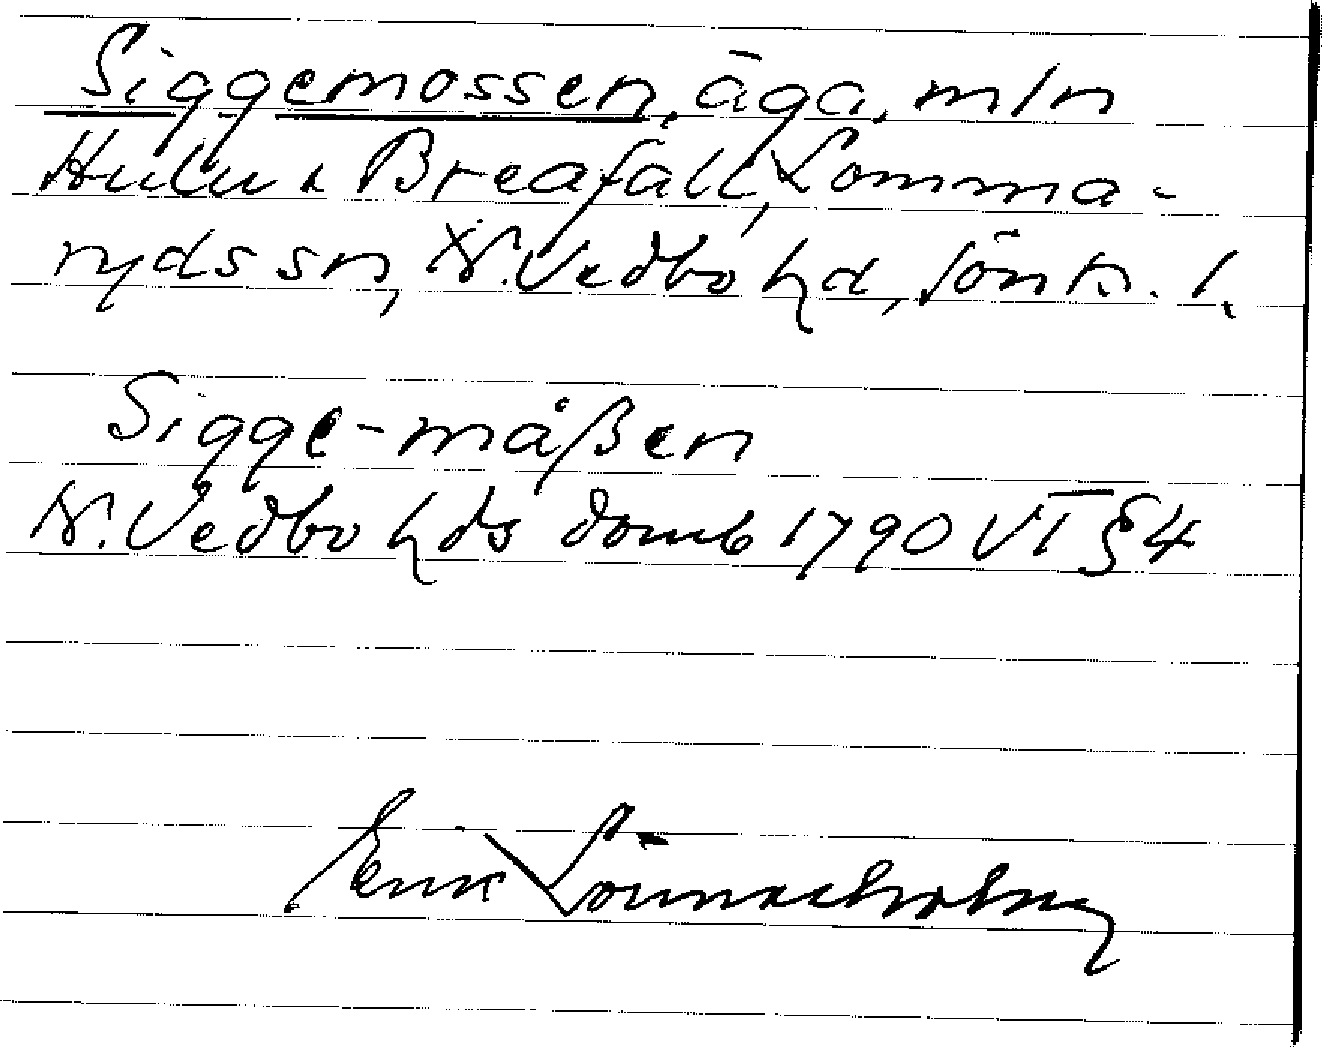 Siggemossen, äga, mln
Hulu o Breafall, Lomma-
ryds sn, N. Vedbo hd, Jönk. l.
Sigge-måßen
N. Vedbo hds domb 1790 VI § 4
Erik Lönnerholm